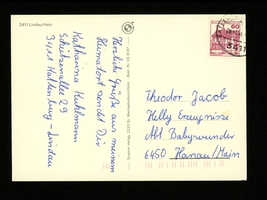 3411 Lindau/Harz
Herzliche Grüße aus meinem
Heimatort sendet Dir
Katharina Kuhlmann
Schützenallee 29
3411 Katlenburg-Lindau
60
3411
Theodor Jacob
Helly Erzeugnisse
Abt. Babywunder
6450 Hanau/Main